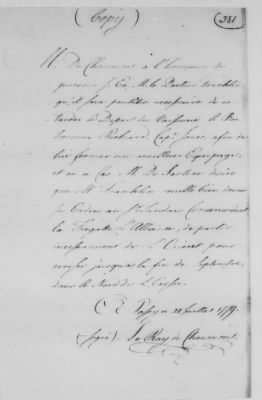 (Copy)
381
M. De Chaumont a l'honneur de
prevenir S. Ex. M. le Docteur Franklin
qu'il sera peutêtre necessaire de re
tarder le Depart du Vaisseau le Bon
homme Richard Capt Jones, afin de
lui former un meilleur Equipage,
et en ce cas M. De Sartine desire
que M. franklin veuille bien donner
ses Ordres au Sr. Landais Commandant
la Fregatte L'Alliance, de partir
incessamment de L'Orient pour
croiser jusqu'a la fin de Septembre,
dans le Nord de L'Ecosse.
A Passy ce 28 Juillet 1779.
(signé) Le Ray de Chaumont.